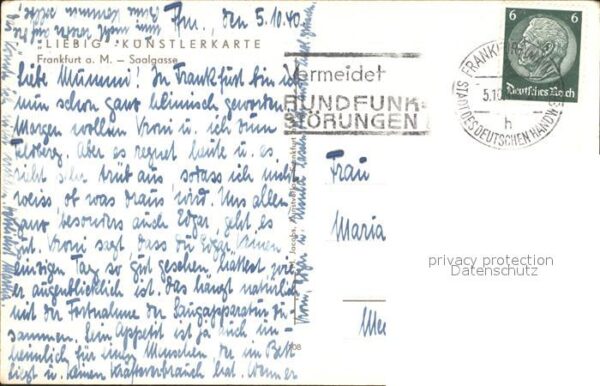 Ffm., den 5.10.40.
"LIEBIG" KÜNSTLERKARTE
Frankfurt a. M. — Saalgasse
Liebe Mummi! In Frankfurt bin ich
nun schon ganz heimisch geworden.
Morgen wollen Vroni u. ich zum
Feldberg. Aber es regnet heute u. es
sieht sehr trüb aus, sodass ich nicht
weiss ob was draus wird. Uns allen
ganz besonders auch Edgar, geht es
gut. Vroni sagt, dass du Edgar keinen
einzigen Tag so gut gesehen hättest, wie
er augenblicklich ist. Das hängt natürlich
mit der Fortnahme der Saugapparatur zu-
sammen. Sein Appetit ist ja auch un-
heimlich für einen Menschen, der im Bett
liegt u. keinen Kräfteverbrauch hat. Wenn er
Vermeidet
RUNDFUNK-
STÖRUNGEN
6 6
Deutsches Reich
FRANKFURT
5.10
h
STADT DES DEUTSCHEN HANDW
Frau
Maria
privacy protection
Datenschutz